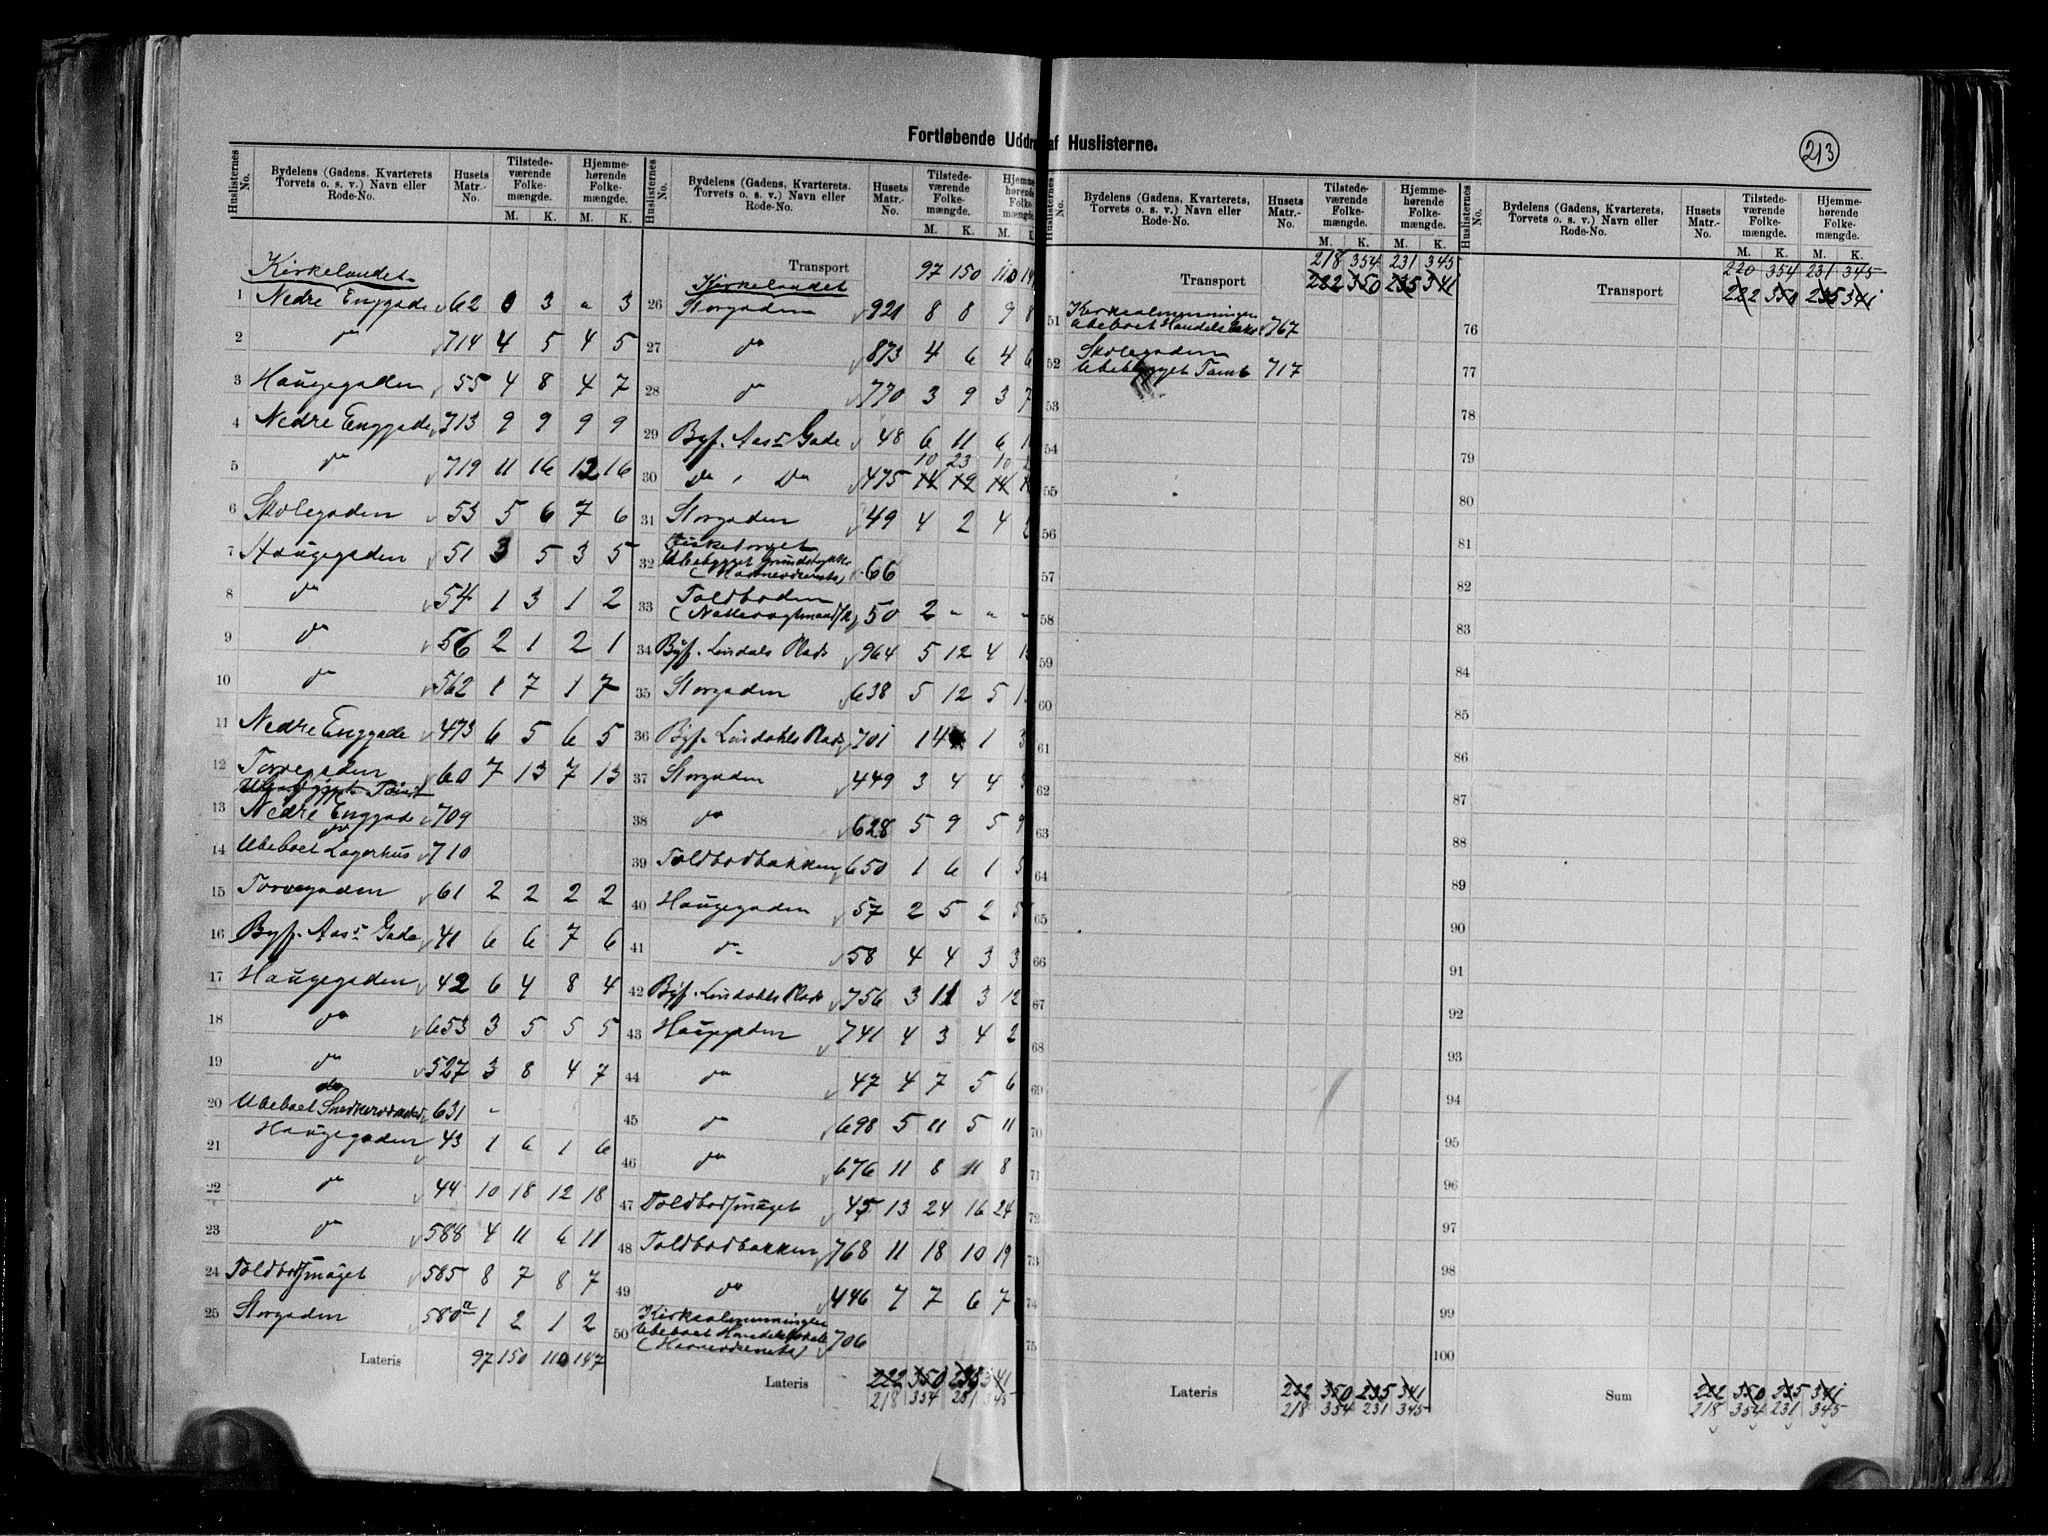 Fortløbende Uddr af Huslisterne.
213
Huslisternes No. Bydelens (Gadens, Kvarterets Torvets o. s. v.) Navn eller Rode-No. Husets Matr.-No. Tilstede-værende Folke-mængde. M. K. Hjemme-hørende Folke-mængde. M. K.
Kirkelandet
1 Nedre Enggade 62 0 3 " 3
2 do 714 4 5 4 5
3 Haugegaden 55 4 8 4 7
4 Nedre Enggade 713 9 9 9 9
5 do 719 11 16 12 16
6 Skolegaden 53 5 6 7 6
7 Haugegaden 51 3 5 3 5
8 do 54 1 3 1 2
9 do 56 2 1 2 1
10 do 562 1 7 1 7
11 Nedre Enggade 473 6 5 6 5
12 Torvegaden 60 7 13 7 13
Ubebygget Tomt
13 Nedre Enggade 709
do
14 Ubeboet Lagerhus 710
15 Torvegaden 61 2 2 2 2
16 Byf. Aass Gade 41 6 6 7 6
17 Haugegaden 42 6 4 8 4
18 do 653 3 5 5 5
19 do 527 3 8 4 7
do
20 Ubeboet 631 "
21 Haugegaden 43 1 6 1 6
22 do 44 10 18 12 18
23 do 588 4 11 6 11
24 Toldbodsmuget 585 8 7 8 7
25 Storgaden 580a 1 2 1 2
Lateris 97 150 110 147
Huslisternes No. Bydelens (Gadens, Kvarterets, Torvets o. s. v.) Navn eller Rode-No. Husets Matr.-No. Tilstede-værende Folke-mængde. M. K. Hjemme-hørende Folke-mængde. M. K.
Transport 97 150 110 14
Kirkelandet
26 Storgaden 921 8 8 9 8
27 do 873 4 6 4 6
28 do 770 3 9 3 7
29 Byf. Aass Gade 48 6 11 6 1
10 23 10 2
30 Do " Do 475 14 12 14 1
31 Storgaden 49 4 2 4
Fisketorvet
32 Ubebygget Grundstykke 66
(Havnevæsenets)
33 Toldboden
50 2 " " "
34 Byf. Lindals Plads 964 5 12 4 1
35 Storgaden 638 5 12 5 1
36 Byf. Lindahls Plads 701 1 4 1 3
37 Storgaden 449 3 4 4
38 do 628 5 9 5 9
39 Toldbodbakken 650 1 6 1 5
40 Haugegaden 57 2 5 2 5
41 do 58 4 4 3 3
42 Byf. Lindahls Plads 756 3 11 3 12
43 Haugegaden 741 4 3 4 2
44 do 47 4 7 5 6
45 do 698 5 11 5 11
46 do 676 11 8 11 8
47 Toldbodsmuget 45 13 24 16 24
48 Toldbodbakken 768 11 18 10 19
49 do 446 7 7 6 7
Kirkealmenningen
50 Ubeboet Handelslokale 706
(Havnevæsenets)
Lateris 222 350 235 341
218 354 231 345
Huslisternes No. Bydelens (Gadens, Kvarterets, Torvets o. s. v.) Navn eller Rode-No. Husets Matr.-No. Tilstede-værende Folke-mængde. M. K. Hjemme-hørende Folke-mængde. M. K.
218 354 231 345
Transport 222 350 235 341
Kirkealmenningen
51 Ubeboet 767
Skolegaden
52 Ubebygget Tomt 717
53
54
55
56
57
58
59
60
61
62
63
64
65
66
67
68
69
70
71
72
73
74
75
Lateris 222 350 235 341
218 354 231 345
Huslisternes No. Bydelens (Gadens, Kvarterets, Torvets o. s. v.) Navn eller Rode-No. Husets Matr.-No. Tilstede-værende Folke-mængde. M. K. Hjemme-hørende Folke-mængde. M. K.
220 354 231 345
Transport 222 350 235 341
76
77
78
79
80
81
82
83
84
85
86
87
88
89
90
91
92
93
94
95
96
97
98
99
100
Sum 222 350 235 341
218 354 231 345